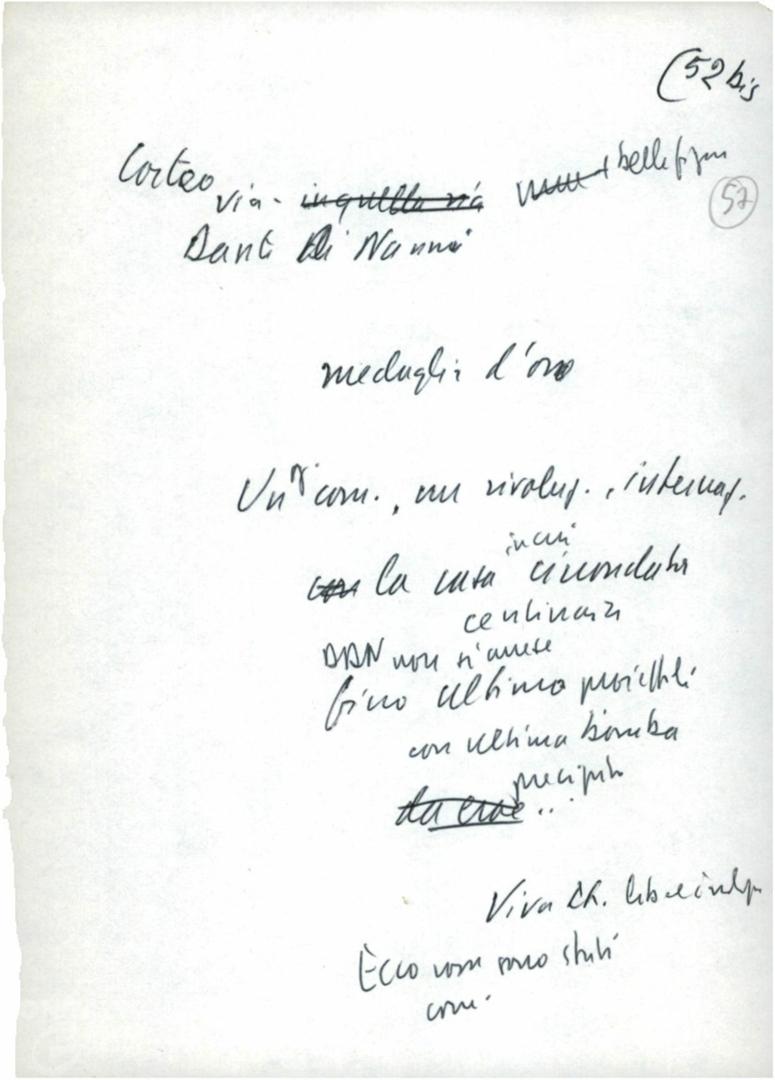 (52 bis
Corteo via - in quella via belle figur
57
Dante Di Nanni
medaglia d'oro
Un com., un rivoluz., internaz.
in cui
con la casa circondata
centinaia
DDN non si arrese
fino ultimo proiettili
con ultima bomba
precipitò
da eroe ...
Viva It. libera e indip
Ecco come sono stati
com.